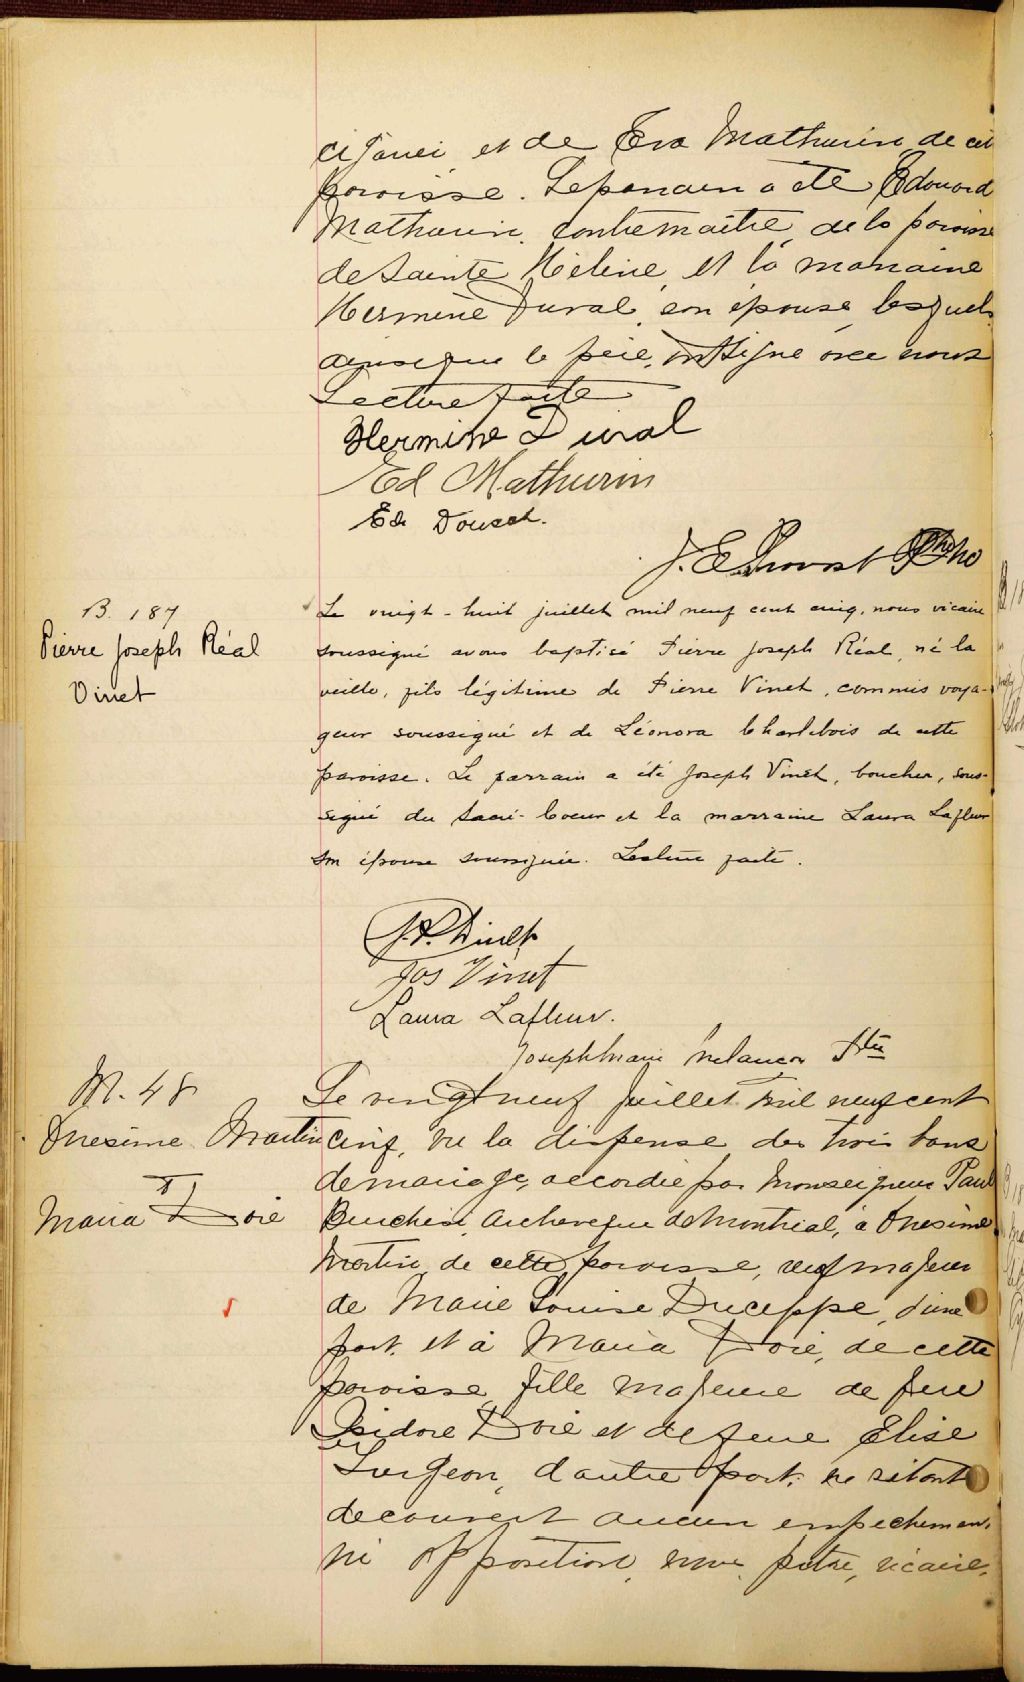 et de Eva Mathurin, de cette
paroisse. Le parrain a été Edouard
Mathurin, contremaitre, de la paroisse
de Sainte Hélène, et la marraine
Hermine Duval, son épouse, lesquels
ainsi que le père, ont signé avec nous
Lecture faite
Hermine Duval
Ed Mathurin
J. E. Provost Ptre
B. 187
Pierre Joseph Réal
Vinet
Le vingt-huit juillet mil neuf cent cinq, nous vicaire
soussigné avons baptisé Pierre Joseph Réal, né la
veille, fils légitime de Pierre Vinet, commis voya-
geur soussigné et de Léonora Charlebois de cette
paroisse. Le parrain a été Joseph Vinet, boucher, sous-
signé du Sacré-Coeur et la marraine Laura Lafleur
son épouse soussignée. Lecture faite.
J.P. Vinet
Jos Vinet
Laura Lafleur.
Joseph Marie Melançon Ptre
M. 48
Onesime Martin
&
Maria Doré
Le vingt neuf juillet mil neuf cent
cinq, vu la dispense des trois bans
de mariage, accordée par Monseigneur Paul
Bruchési, Archevêque de Montréal, à Onesime
Martin, de cette paroisse, veuf majeur
de Marie Louise Duceppe, d'une
part, et à Maria Doré, de cette
paroisse, fille majeure de feu
Isidore Doré et de feue Elise
Surgeon, d'autre part; ne s'étant
découvert aucun empechement,
ni opposition, nous, prêtre, vicaire,